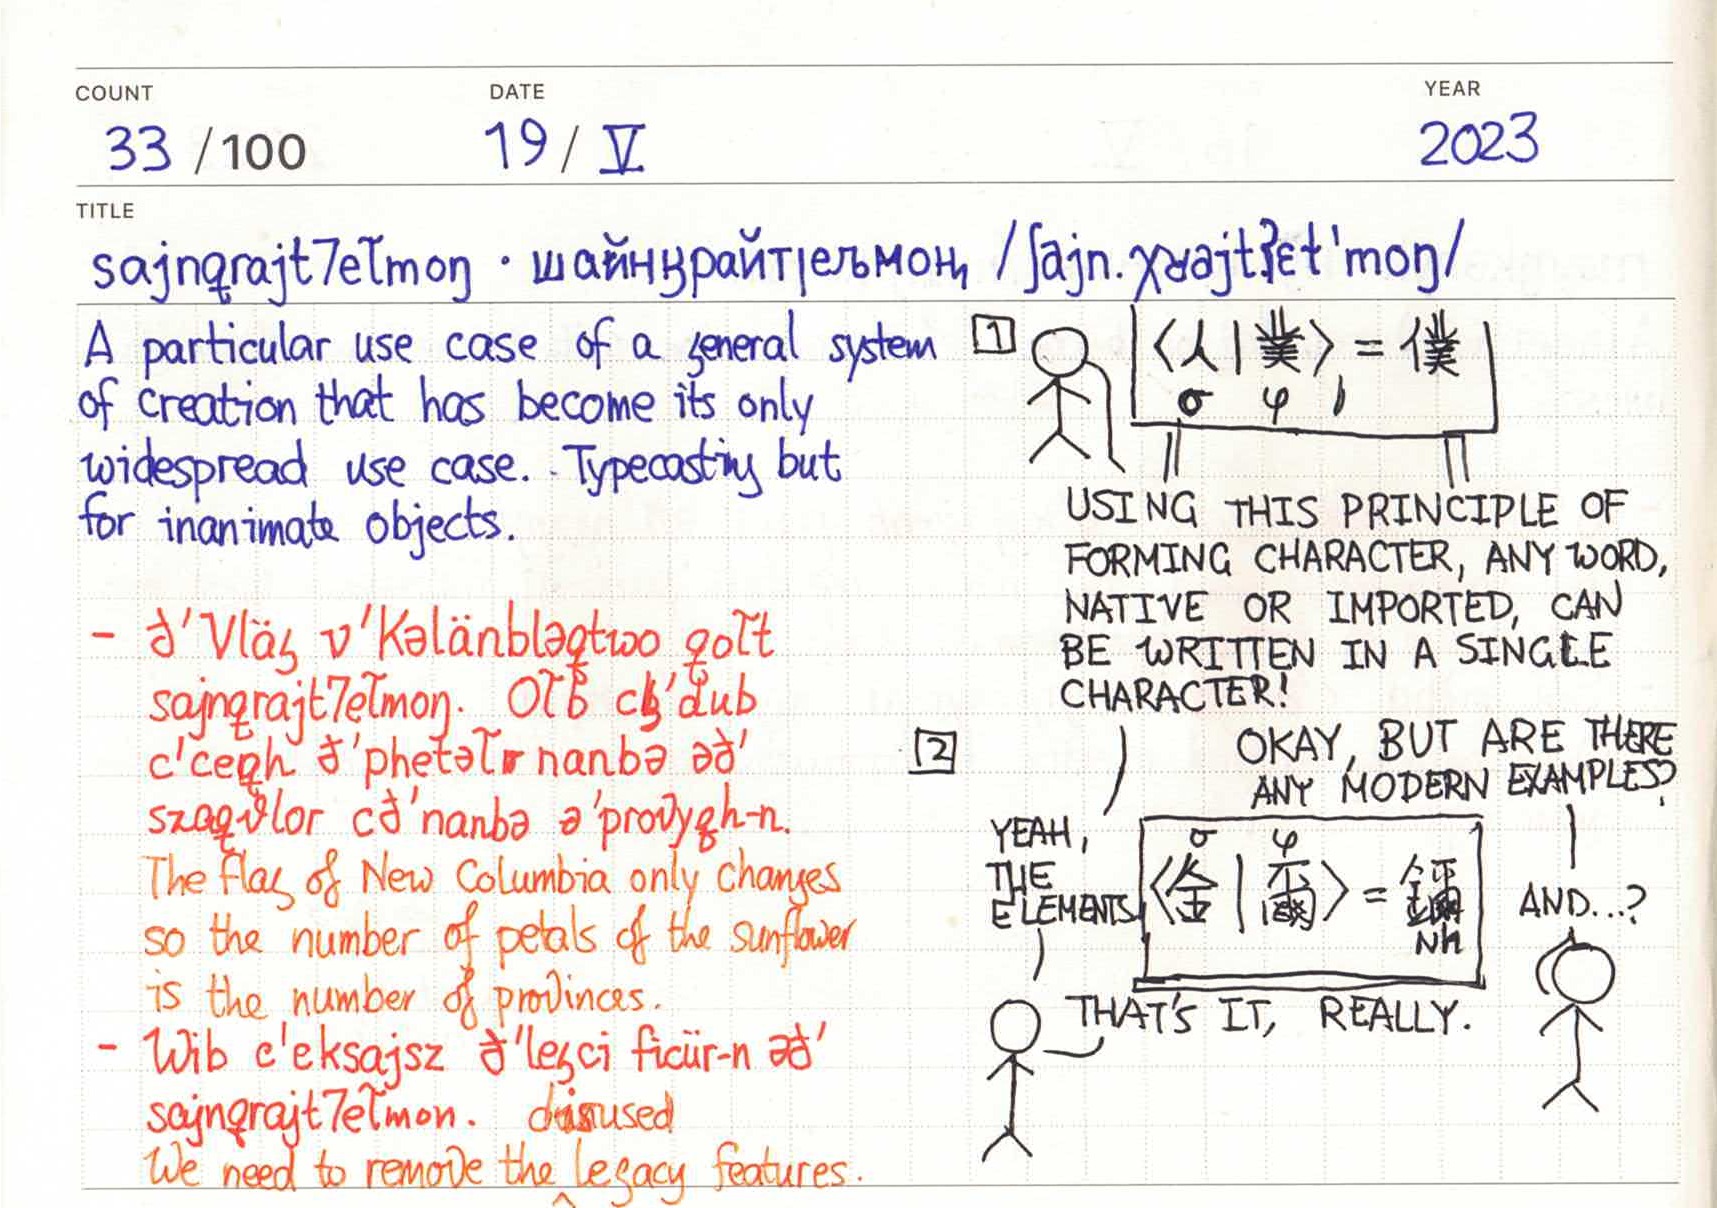 COUNT DATE YEAR
33 /100 19 / V 2023
TITLE
sajnqrajt7eľmoŋ · шайнӄрайтӏељмоӊ /ʃajn.χʁajtʡɛɫˈmoŋ/
A particular use case of a general system
of creation that has become its only
widespread use case. Typecasting but
for inanimate objects.
- ð'Vläg v'Kəlänbləqtwo
sajnqrajt7eľmoŋ.
nanbə əð'
cð'nanbə
The flag of New Columbia only changes
so the number of petals of the sunflower
is the number of provinces.
- Wib c'eksajsz ð'legci ficür-n əð'
sajnqrajt7eľmon. disused
We need to remove the ^ legacy features.
1
〈人|業〉=僕
σ φ
USING THIS PRINCIPLE OF
FORMING CHARACTER, ANY WORD,
NATIVE OR IMPORTED, CAN
BE WRITTEN IN A SINGLE
CHARACTER!
2
OKAY, BUT ARE THERE
ANY MODERN EXAMPLES?
YEAH,
THE
ELEMENTS
σ φ
Nh
AND...?
THAT'S IT, REALLY.